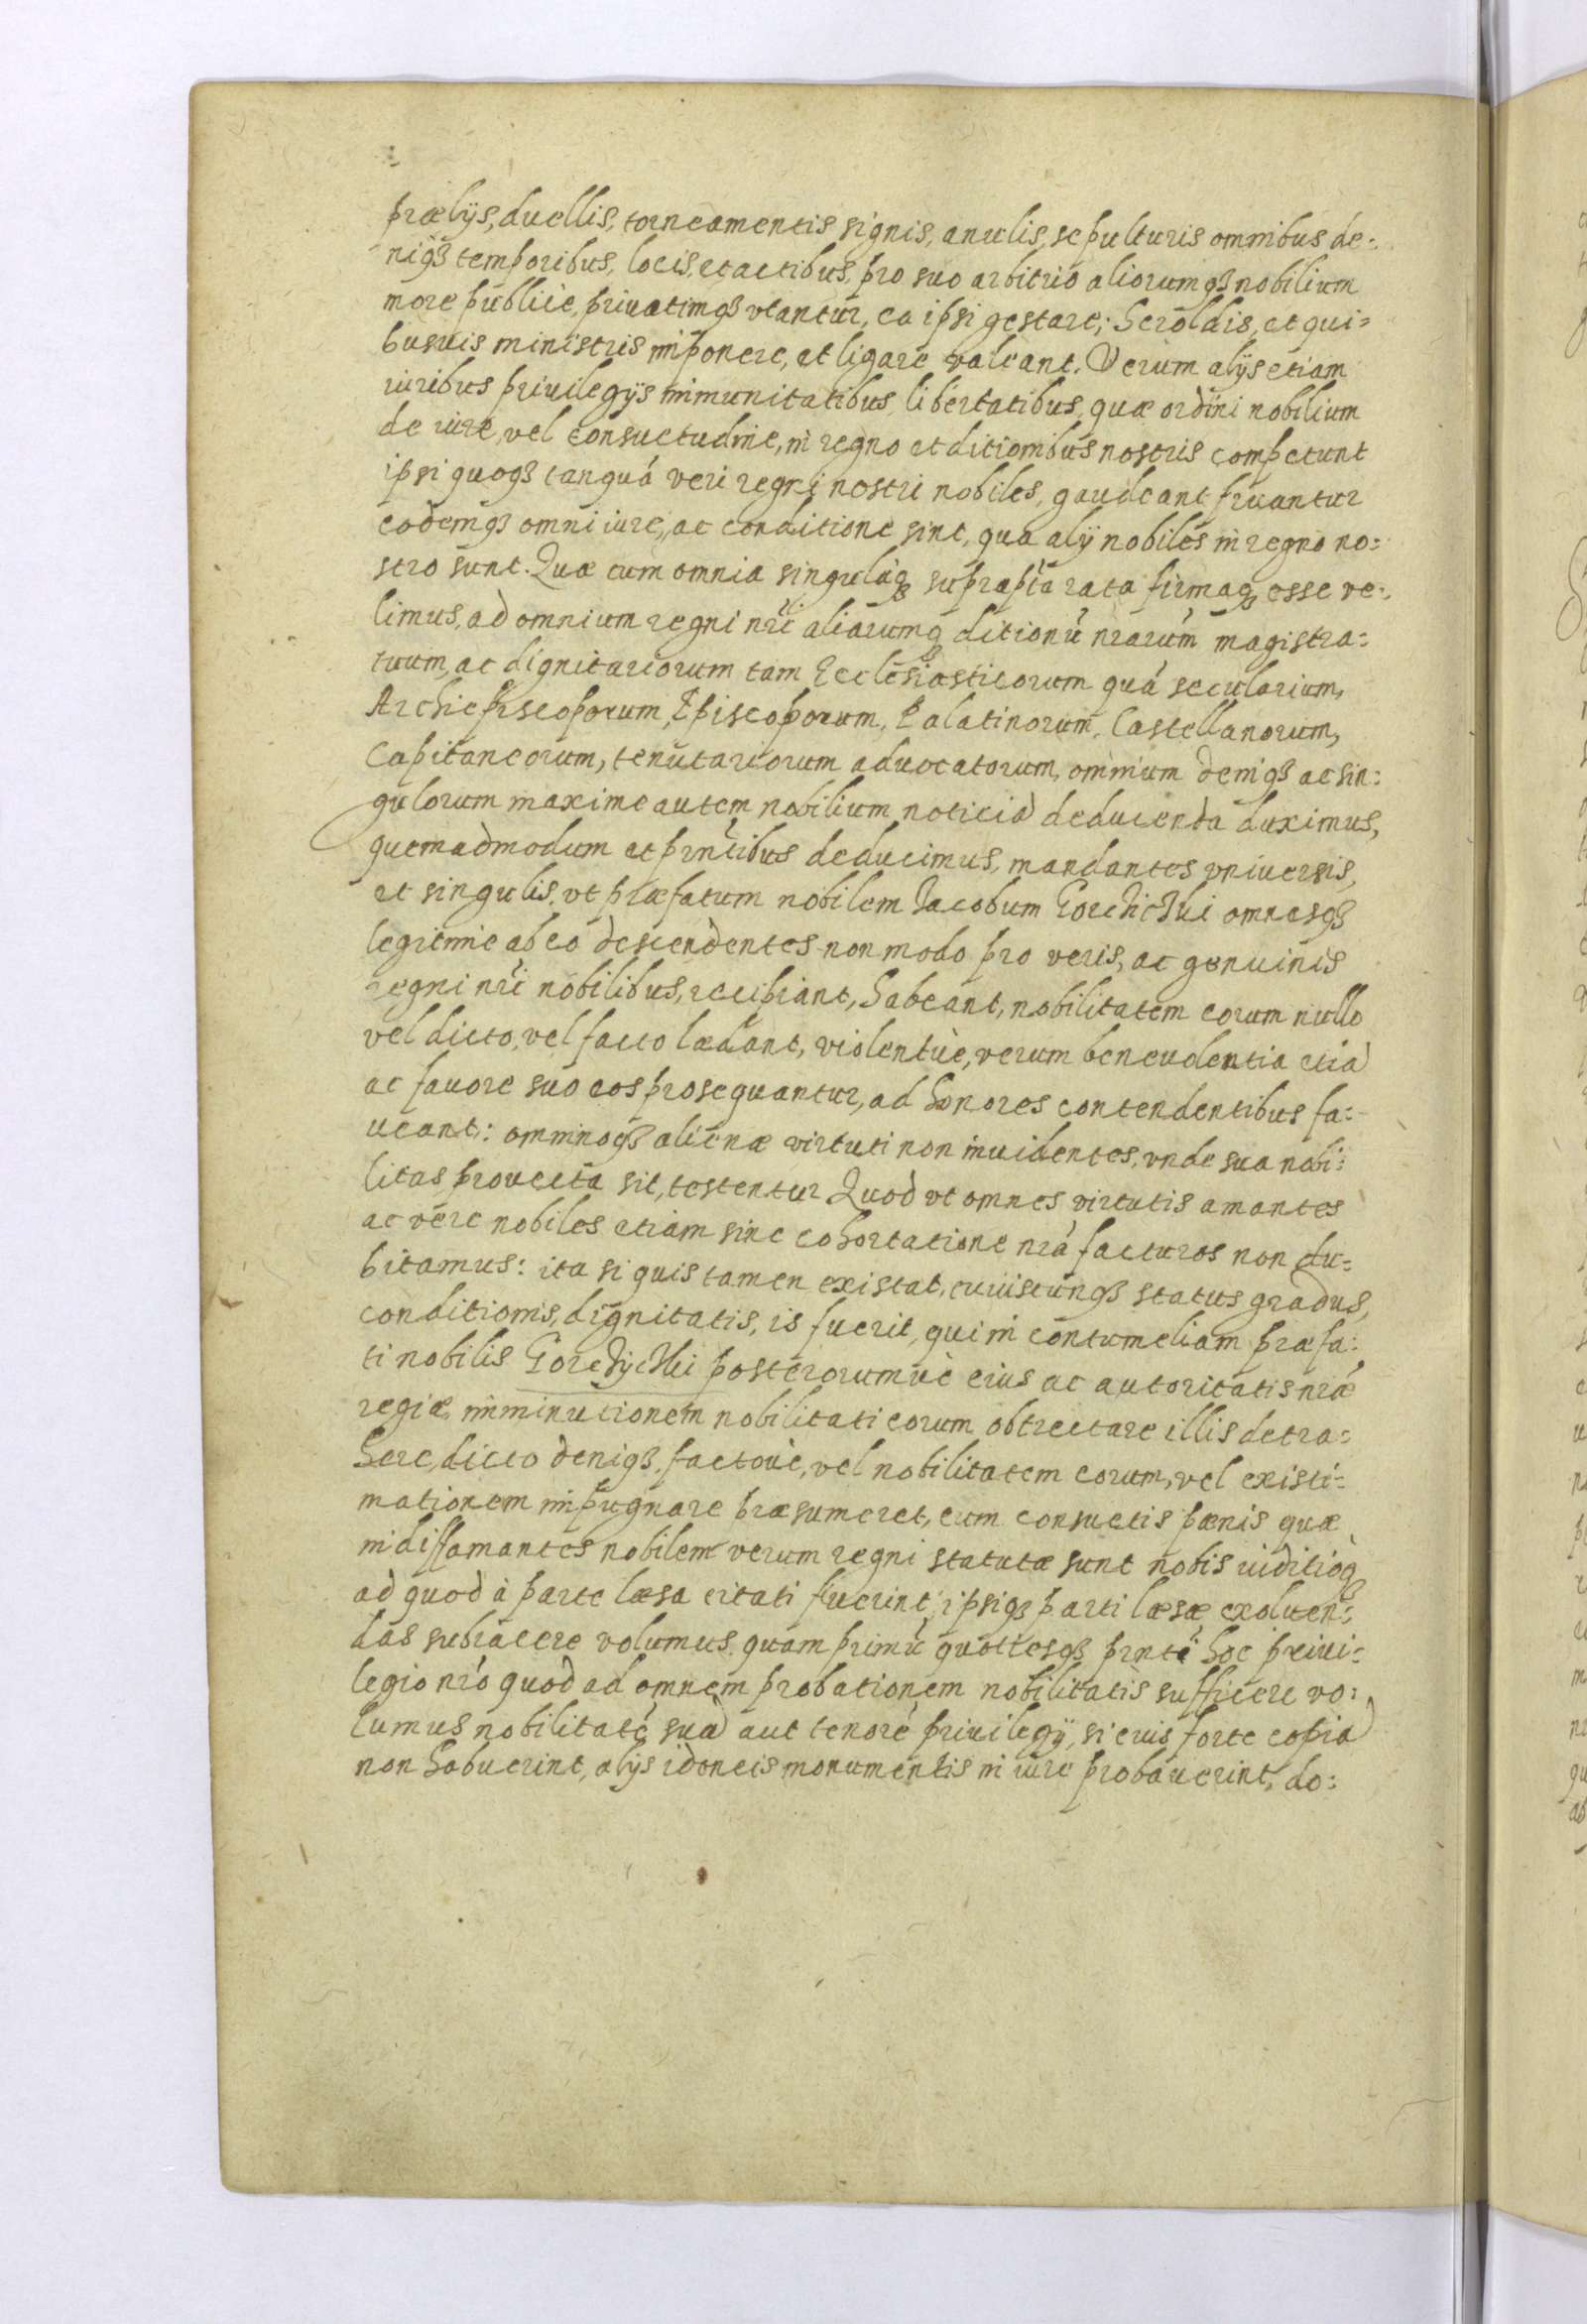 prælijs, duellis, torneamentis signis, anulis, sepulturis omnibus de:
niqȝ temporibus, locis, et actibus, pro suo arbitrio aliorumqȝ nobilium
more publicè, priuatimqȝ vtantur, ea ipsi gestare, heroldis, et qui:
busuis ministris imponere, et ligare valeant. Verum alijs etiam
iuribus priuilegijs immunitatibus, libertatibus, quæ ordini nobilium
de iure, vel consuetudine, in regno et ditionibus nostris competunt
ipsi quoqȝ tanquá veri regni nostri nobiles, gaudeant fruantur
eodemqȝ omni iure, ac conditione sint, qua alij nobiles in regno no:
stro sunt. Quæ cum omnia singulaqȝ suprapta rata firmaqȝ esse ve:
limus, ad omnium regni nri aliarumqȝ ditionú nrarúm magistra:
tuum, ac dignitariorum tam Ecclesiasticorum quá secularium,
Archiepiscoporum, Episcoporum, Palatinorum, Castellanorum,
Capitaneorum, tenutariorum aduocatorum, omnium deniqȝ ac sin:
gulorum maxime autem nobilium noticiá deducenda duximus,
quemadmodum et prntibus deducimus, mandantes vniuersis,
et singulis, vt præfatum nobilem Jacobum omnesqȝ
legitimè ab eo descendentes non modo pro veris, ac genuinis
regni nri nobilibus, recipiant, habeant, nobilitatem eorum nullo
vel dicto, vel facto lædant, violentùè, verum beneuolentia etiá
ac fauore suo eos prosequantur, ad honores contendentibus fa:
ueant: omninoqȝ alienæ virtuti non inuidentes, vnde sua nobi:
litas prouecta sit, testentur Quod vt omnes virtutis amantes
ac verè nobiles etiam sine cohortatione nrá facturos non du:
bitamus: ita si quis tamen existat, cuiuscunqȝ status gradus,
conditionis, dignitatis, is fuerit, qui in contumeliam præfa:
ti nobilis posterorumùè eius ac autoritatis nræ
regiæ, imminutionem nobilitati eorum obtrectare illis detra:
here, dicto deniqȝ, factoùè, vel nobilitatem eorum, vel existi:
mationem impugnare præsumeret, eum consuetis pænis quæ
in diffamantes nobilem verum regni statutæ sunt nobis iuditioqȝ
ad quod à parte læsa citati fuerint, ipsiqȝ parti læsæ exoluen:
das subiacere volumus, quam primú quotiesqȝ prnti hoc priui:
legio nró quod ad omnem probationem nobilitatis sufficere vo:
lumus nobilitaté suá aut tenoré priuilegij, si eius forte copiá
non habuerint, alijs idoneis monumentis in iure probauerint, do: